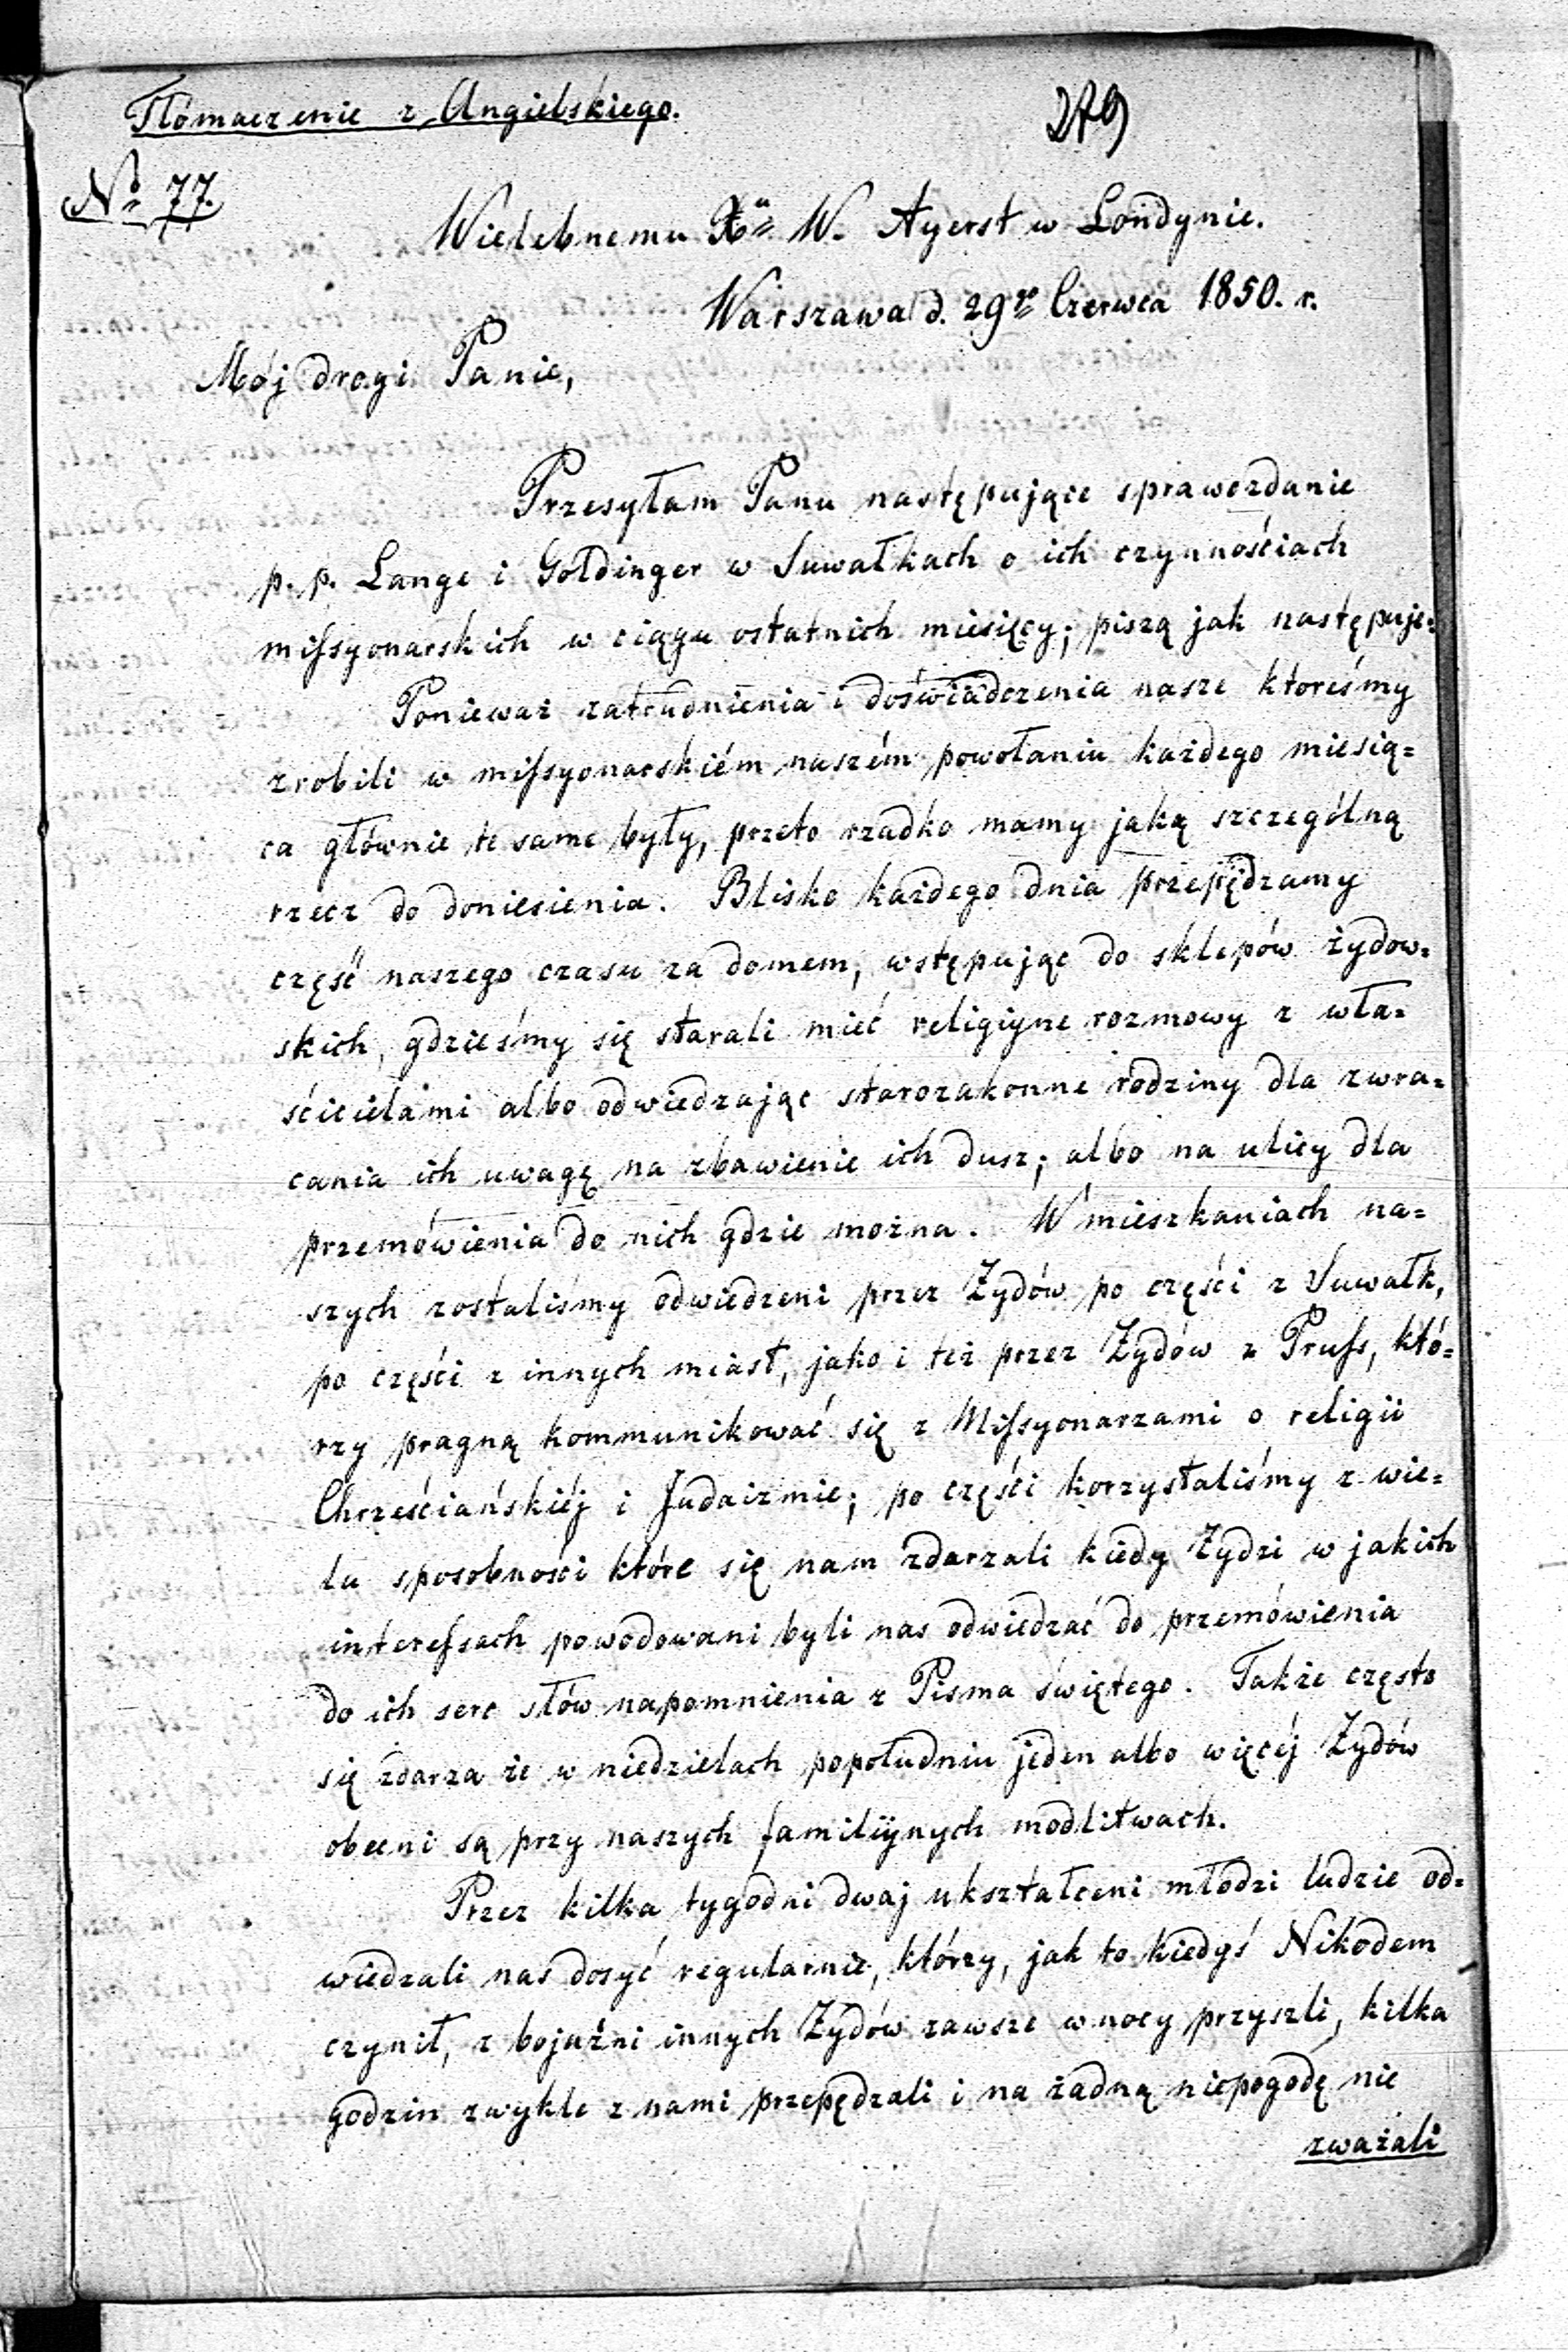 Tłómaczenie z Angielskiego.
279
№ 77.
Wielebnemu Xu W. Ayerst w Londynie.
Warszawa d. 29go Czerwca 1850. r.
Mój drogi Panie,
Przesyłam Panu następujące sprawozdanie
p. p. Lange i Goldinger w Suwałkach o ich czynnościach
missyonarskich w ciągu ostatnich miesięcy; piszą jak następuje:
Ponieważ zatrudnienia i doświadczenia nasze któreśmy
zrobili w missyonarskiém naszém powołaniu każdego miesią=
ca głównie te same były, przeto rzadko mamy jaką szczególną
rzecz do doniesienia. Blisko każdego dnia przepędzamy
część naszego czasu za domem, wstępując do sklepów żydow=
skich, gdzieśmy się starali mieć religiyne rozmowy z wła=
ścicielami albo odwiedzając starozakonne rodziny dla zwra=
cania ich uwagę na zbawienie ich dusz; albo na ulicy dla
przemówienia do nich gdzie można. W mieszkaniach na=
szych zostaliśmy odwiedzeni przez Żydów po części z Suwałk,
po części z innych miast, jako i też przez Żydów z Pruss, któ=
rzy pragną kommunikować się z Missyonarzami o religii
Chrześciańskiéj i Judaizmie; po części korzystaliśmy z wie=
lu sposobności które się nam zdarzali kiedy Żydzi w jakich
interessach powodowani byli nas odwiedzać do przemówienia
do ich serc słów napomnienia z Pisma świętego. Także często
się zdarza że w niedzielach popołudniu jeden albo więcéj Żydów
obecni są przy naszych familiynych modlitwach.
Przez kilka tygodni dwaj ukształceni młodzi ludzie od=
wiedzali nas dosyć regularnie, którzy, jak to kiedyś Nikodem
czynił, z bojaźni innych Żydów zawsze w nocy przyszli, kilka
godzin zwykle z nami przepędzali i na żadną niepogodę nie
zważali